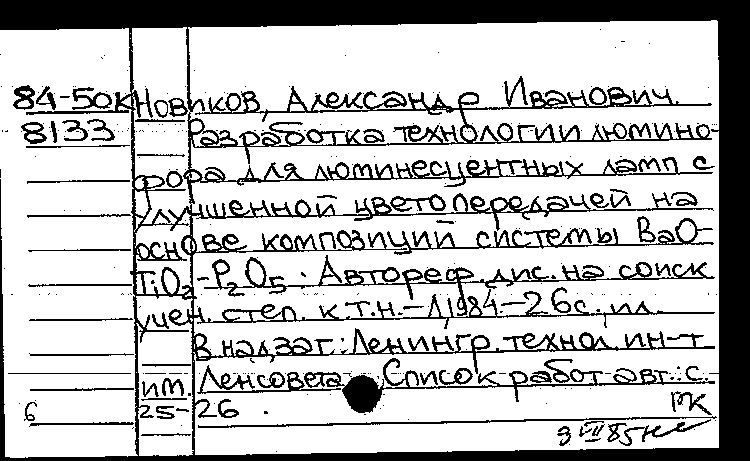 84-50к Новиков, Александр Иванович.
8133 Разработка технологии люмино-
фора для люминесцентных ламп с
улучшенной цветопередачей на
основе композиций системы BaO-
TiO2-P2O5. Автореф. дис. на соиск
учен. степ. к.т.н. - Л, 1984 - 26 с. ил.
В надзаг.: Ленингр. технол. ин-т
им. Ленсовета. Список работ авт.: с.
6 25-26. РК
3 VII 85